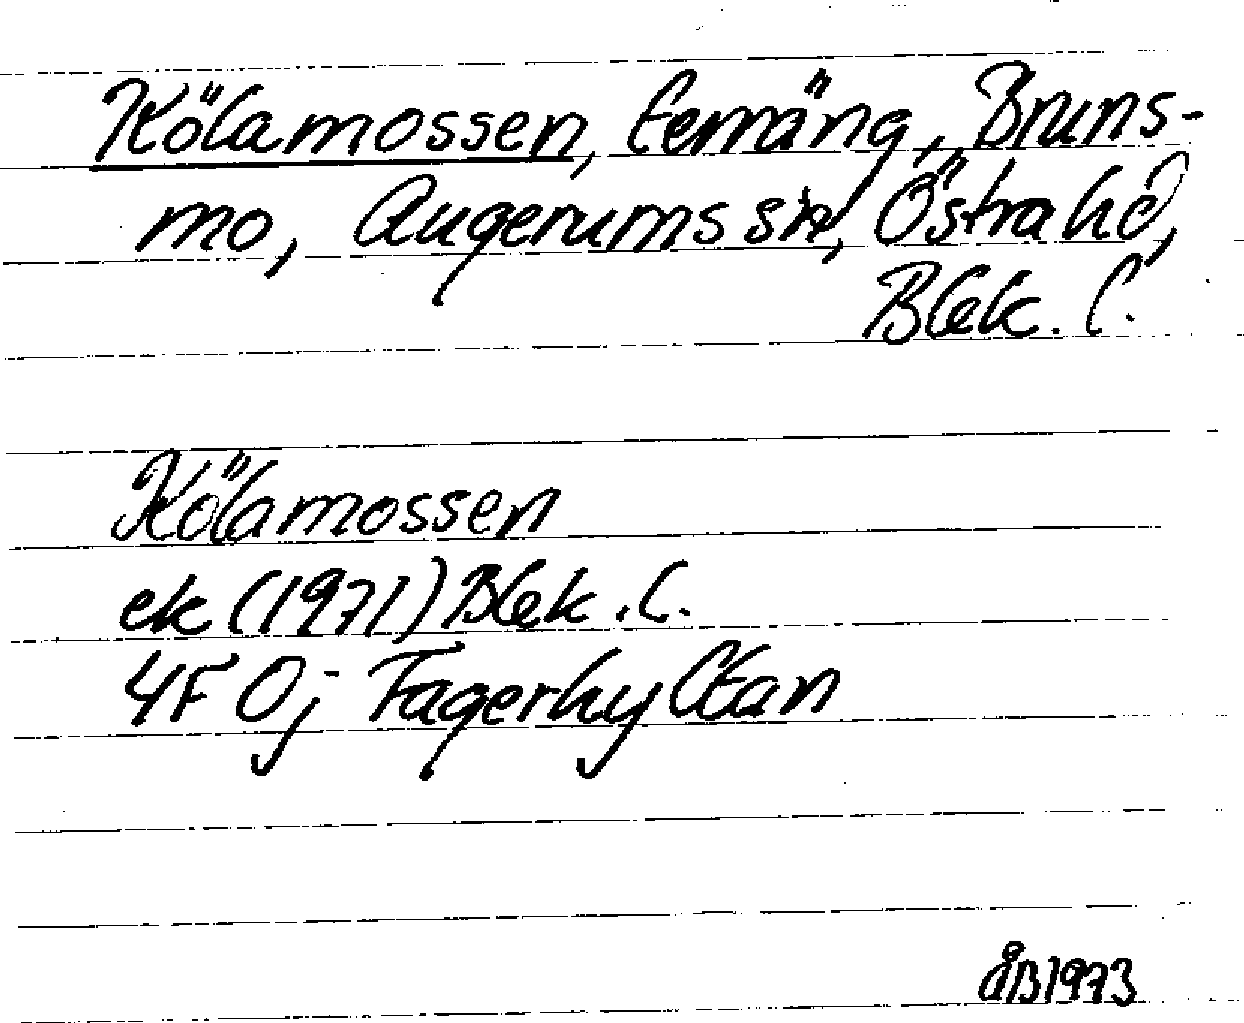 Kölamossen, terräng, Bruns-
mo, Augerums sn, Östra hd,
Blek. l.
Kölamossen
ek (1971) Blek. l.
4F 0j Fagerhyltan
åB 1973